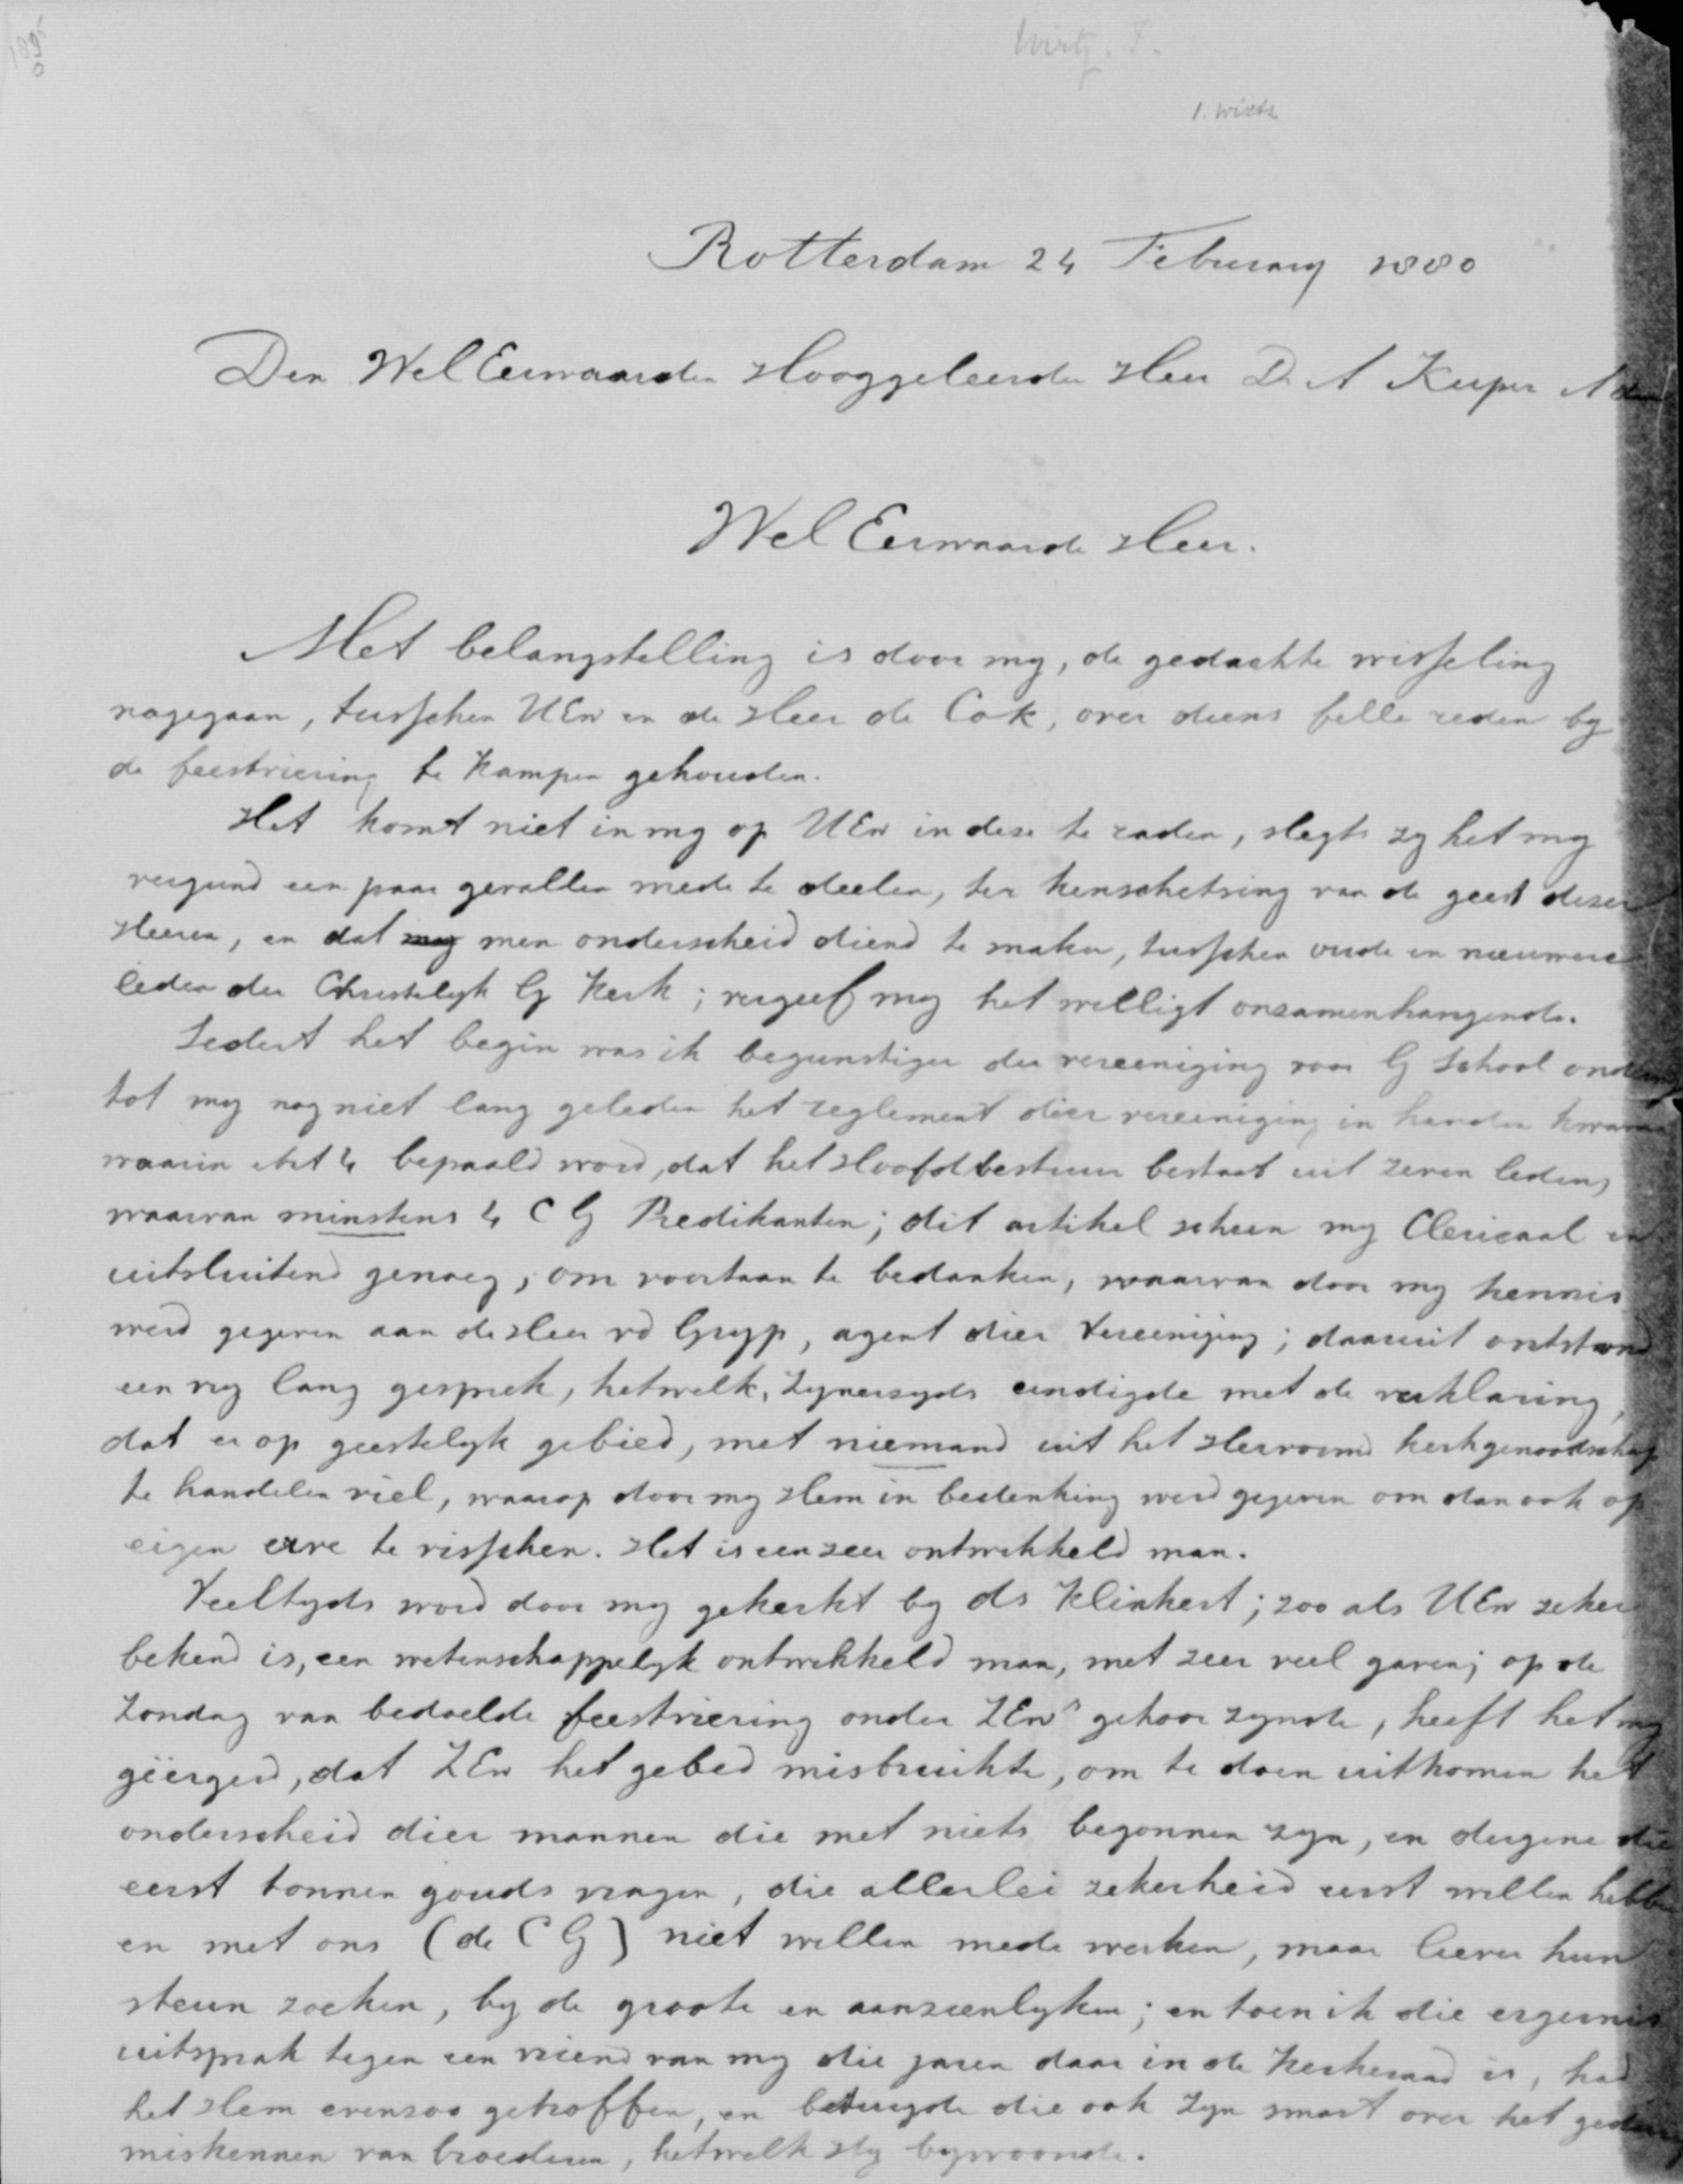 Wirtz. F.
1. Wirtz
1895
Rotterdam 24 February 1880
Den Wel Eerwaarden Hooggeleerden Heer Dr A Kuper A dam
Wel Eerwaarde Heer.
Met belangstelling is door my, de gedachte wisseling
nagegaan, tusschen UEw en de Heer de Cok, over diens felle reden by
de feestviering te Kampen gehouden.
Het komt niet in my op UEw in deze te raden, slegts zy het my
vergund een paar gevallen mede te deelen, ter kenschetsing van de geest dezer
Heeren, en dat men onderscheid diend te maken, tusschen oude en nieuwere
leden der Christelyk G Kerk; vergeef my het welligt onzamenhangende.
Sedert het begin was ik begunstiger der vereeniging voor G School onderwys
tot my nog niet lang geleden het reglement dier vereeniging in handen kwam
waarin Art 4 bepaald word, dat het Hoofdbestuur bestaat uit zeven leden,
waarvan minstens 4 C G Predikanten; dit artikel scheen my Clericaal en
uitsluitend genoeg, om voortaan te bedanken, waarvan door my kennis
werd gegeven aan de Heer vd Gryp, agent dier Vereeniging; daaruit ontstond
een vry lang gesprek, hetwelk, zynerzyds eindigde met de verklaring,
dat er op geestelyk gebied, met niemand uit het Hervormd kerkgenootschap
te handelen viel, waarop door my Hem in bedenking werd gegeven om dan ook op
eigen erve te visschen. Het is een zeer ontwikkeld man.
Veeltyds word door my gekerkt by ds Klinkert; zoo als UEw zeker
bekend is, een wetenschappelyk ontwikkeld man, met zeer veel gaven; op de
Zondag van bedoelde feestviering onder ZEws gehoor zynde, heeft het my
geërgerd, dat ZEw het gebed misbruikte, om te doen uitkomen het
onderscheid dier mannen die met niets begonnen zyn, en dergene die
eerst tonnen gouds vragen, die allerlei zekerheid eerst willen hebben
en met ons (de C G) niet willen mede werken, maar liever hun
steun zoeken, by de groote en aanzienlyken; en toen ik die ergernis
uitsprak tegen een vriend van my die jaren daar in de Kerkeraad is, had
het Hem evenzoo getroffen, en betuygde die ook zyn smart over het gedurig
miskennen van broederen, hetwelk Hy bywoonde.